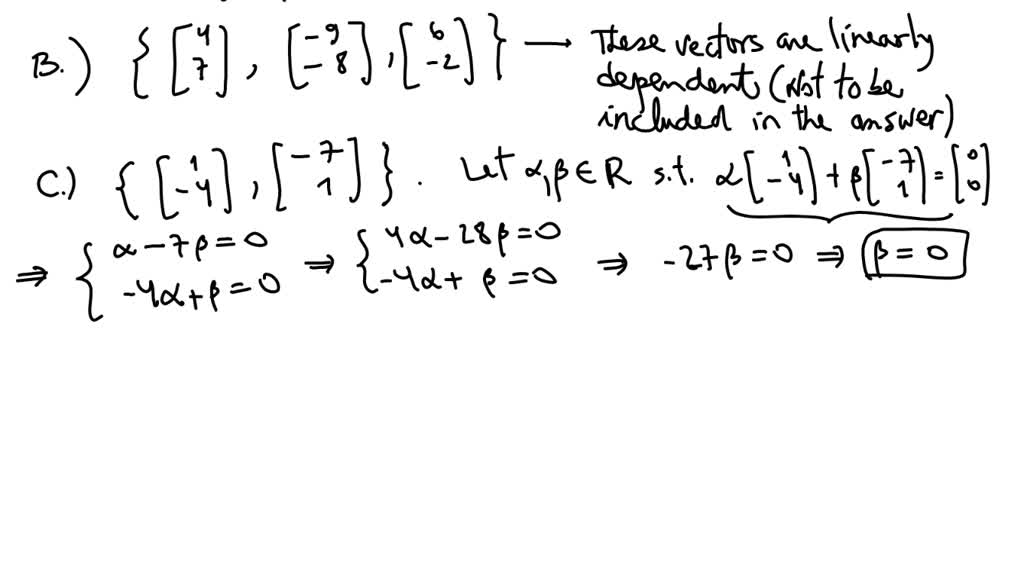 B.) { [4 7], [-9 -8], [6 -2] } → These vectors are linearly
dependent (Not to be
included in the answer)
C.) { [1 -4], [-7 1] }. Let α,β ∈ R s.t. α[1 -4] + β[-7 1] = [0 0]
⇒ { α - 7β = 0 ⇒ { 4α - 28β = 0
-4α + β = 0 -4α + β = 0 ⇒ -27β = 0 ⇒ β = 0